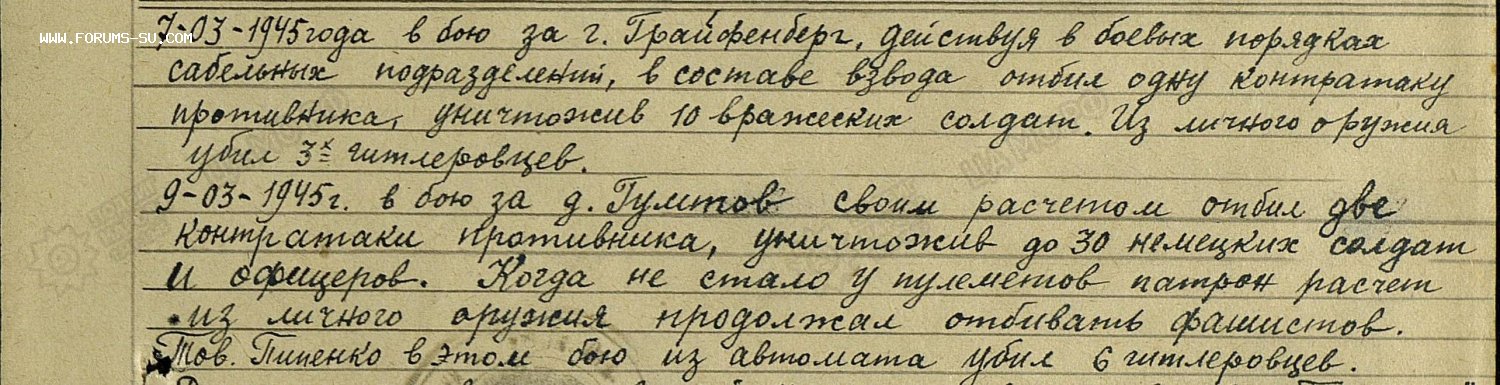 www.forums-su.com
7-03-1945 года в бою за г. Грайфенберг, действуя в боевых порядках
сабельных подразделений, в составе взвода отбил одну контратаку
противника, уничтожив 10 вражеских солдат. Из личного оружия
убил 3х гитлеровцев.
9-03-1945г. в бою за д. Гумтов своим расчетом отбил две
контратаки противника, уничтожив до 30 немецких солдат
и офицеров. Когда не стало у пулеметов патрон расчет
из личного оружия продолжал отбивать фашистов.
Тов. Пипенко в этом бою из автомата убил 6 гитлеровцев.